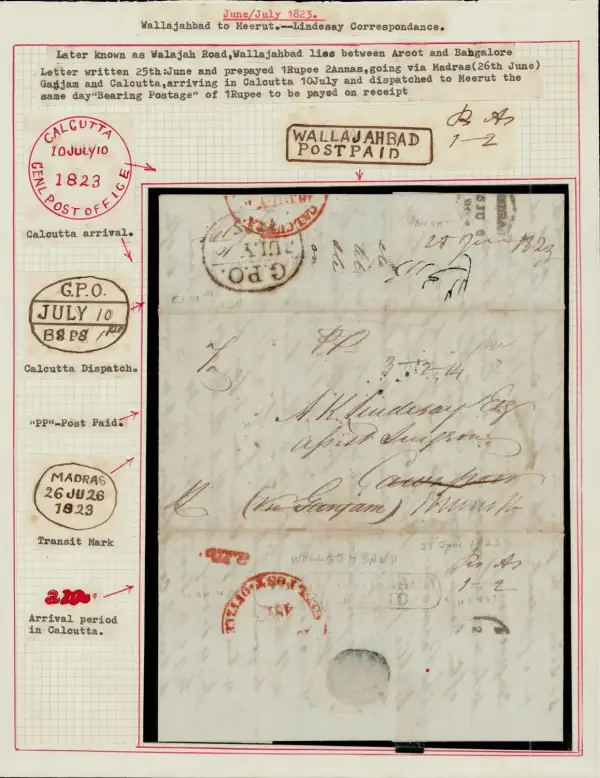 June/July 1823.
Wallajahbad to Meerut.--Lindesay Correspondance.
Later known as Walajah Road,Wallajahbad lies between Arcot and Bangalore
Letter written 25th:June and prepayed 1Rupee 2Annas,going via Madras(26th June)
Ganjam and Calcutta,arriving in Calcutta 10July and dispatched to Meerut the
same day"Bearing Postage" of 1Rupee to be payed on receipt
R As
1-2
WALLAJAHBAD
POSTPAID
CALCUTTA
10JULY10
1823
GENL POST OFFICE
Calcutta arrival.
G.P.O.
JULY 10
Calcutta Dispatch.
"PP"-Post Paid.
MADRAS
26 JU 26
1823
Transit Mark
a.m.
Arrival period
in Calcutta.
CALCUTTA
G.P.O.
JULY
25 June 1823
PP
A.K. Lindesay Esq
Assist Surgeon
Cawnpoor
(Via Ganjam)
a.m.
WALLAJAHBAD
25 June 1823
Rs As
1-2
GENL POST OFFICE